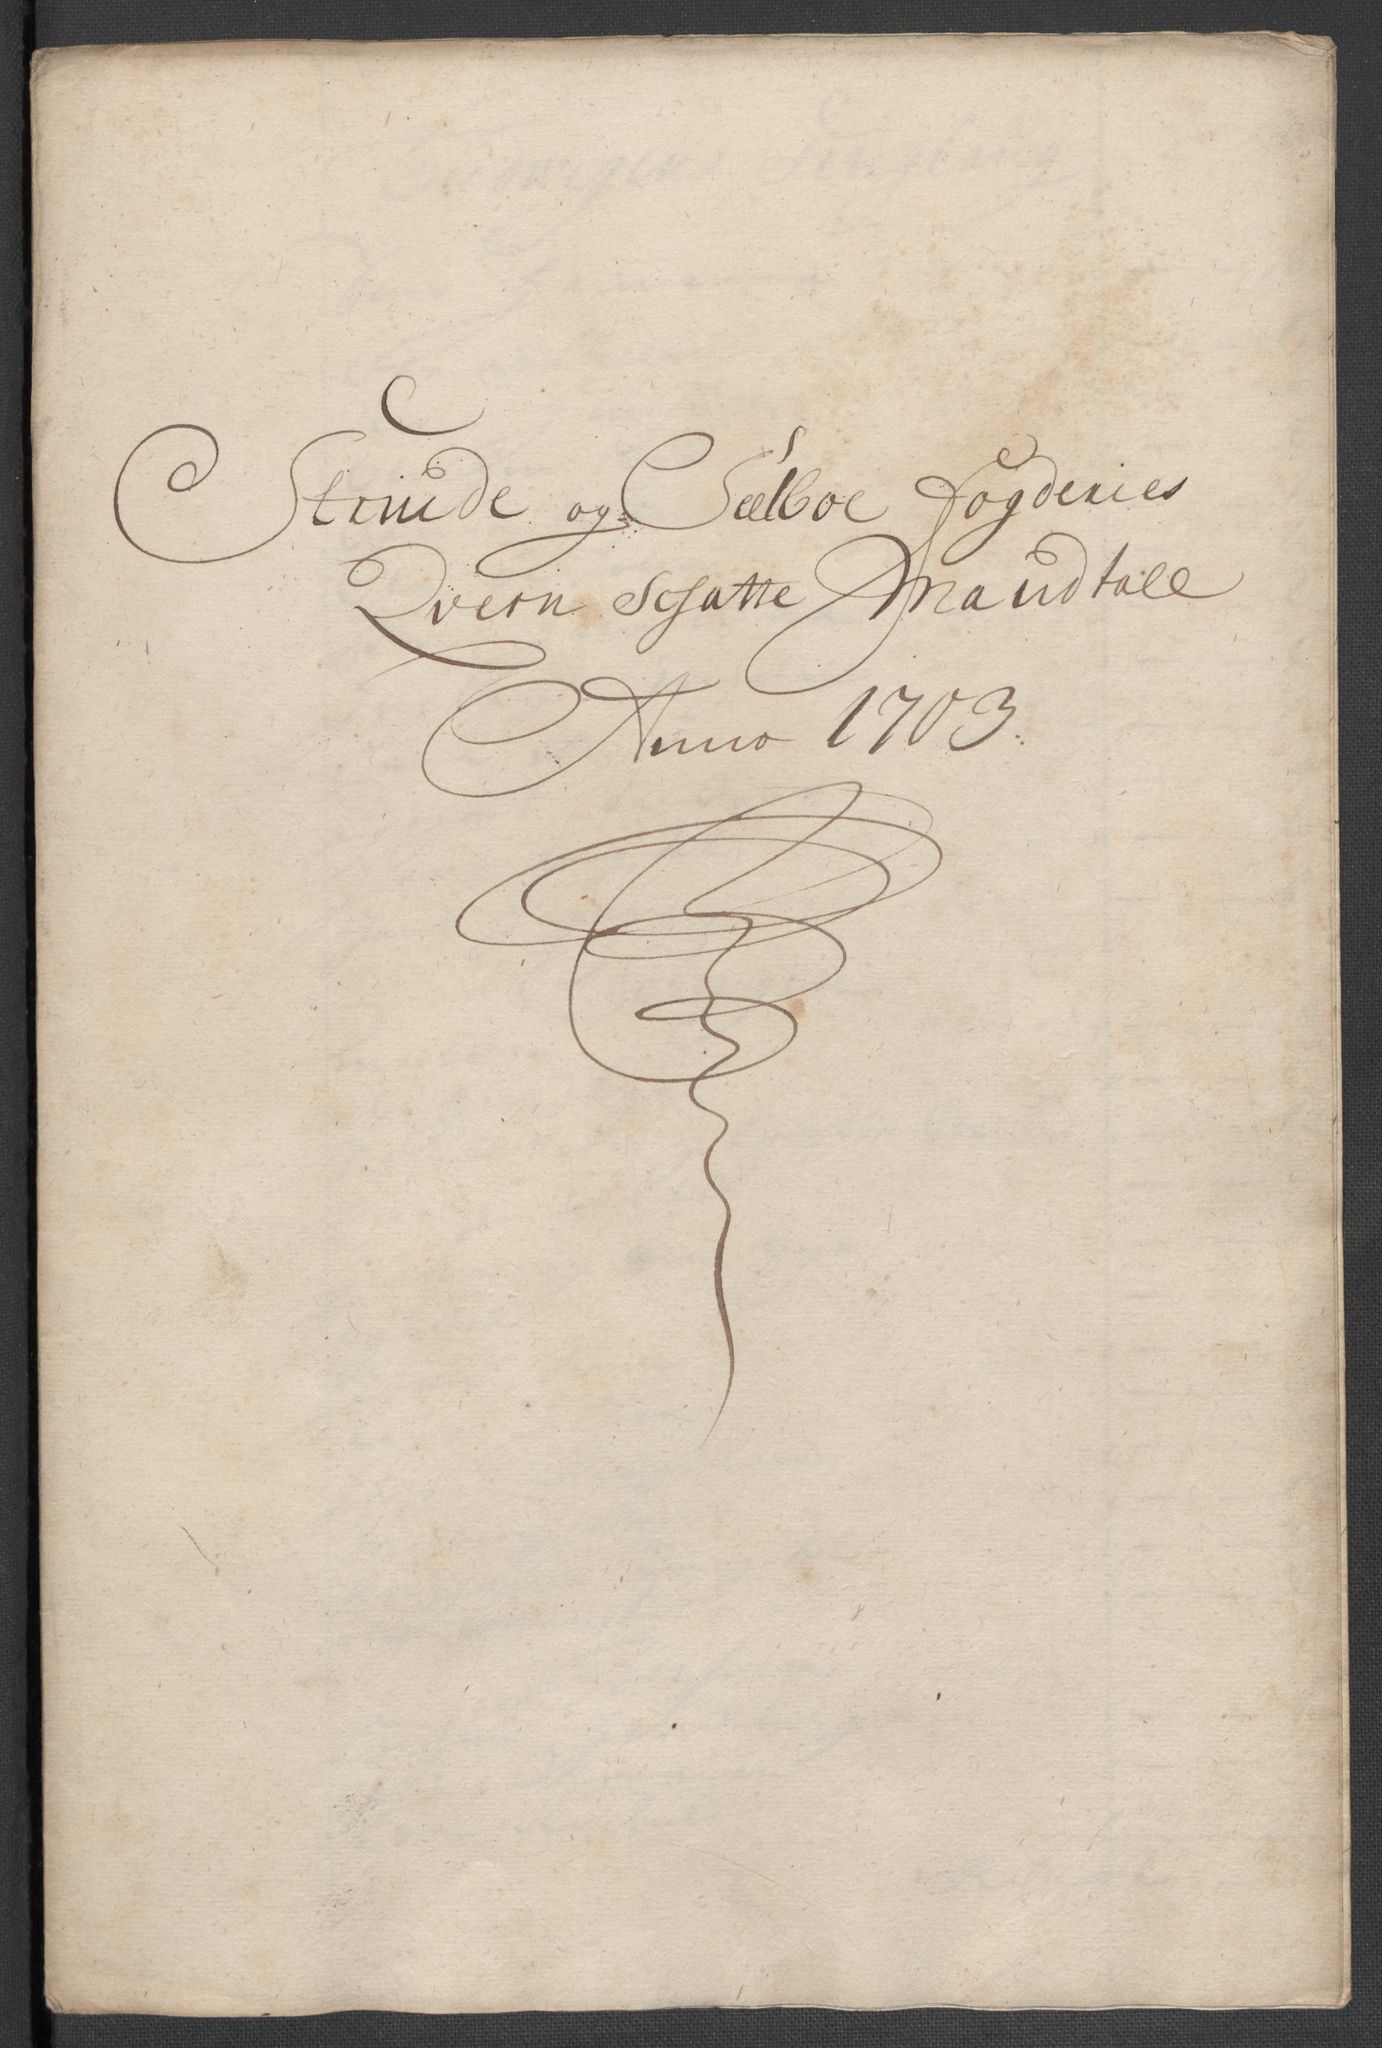 Strinde og Sælboe fogderies
Qvern Schatte Mandtall
Anno 1703.